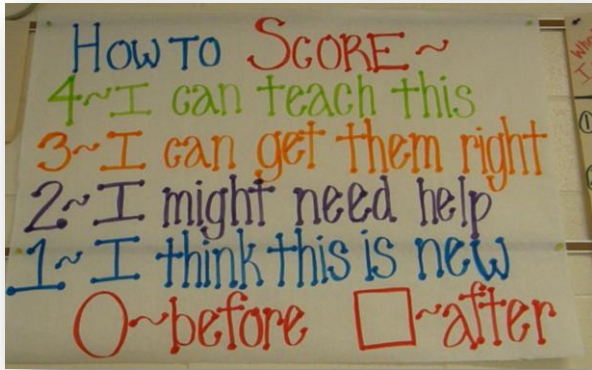 HOW TO SCORE~
4~I can teach this
3~I can get them right
2~I might need help
1~I think this is new
~before ~after